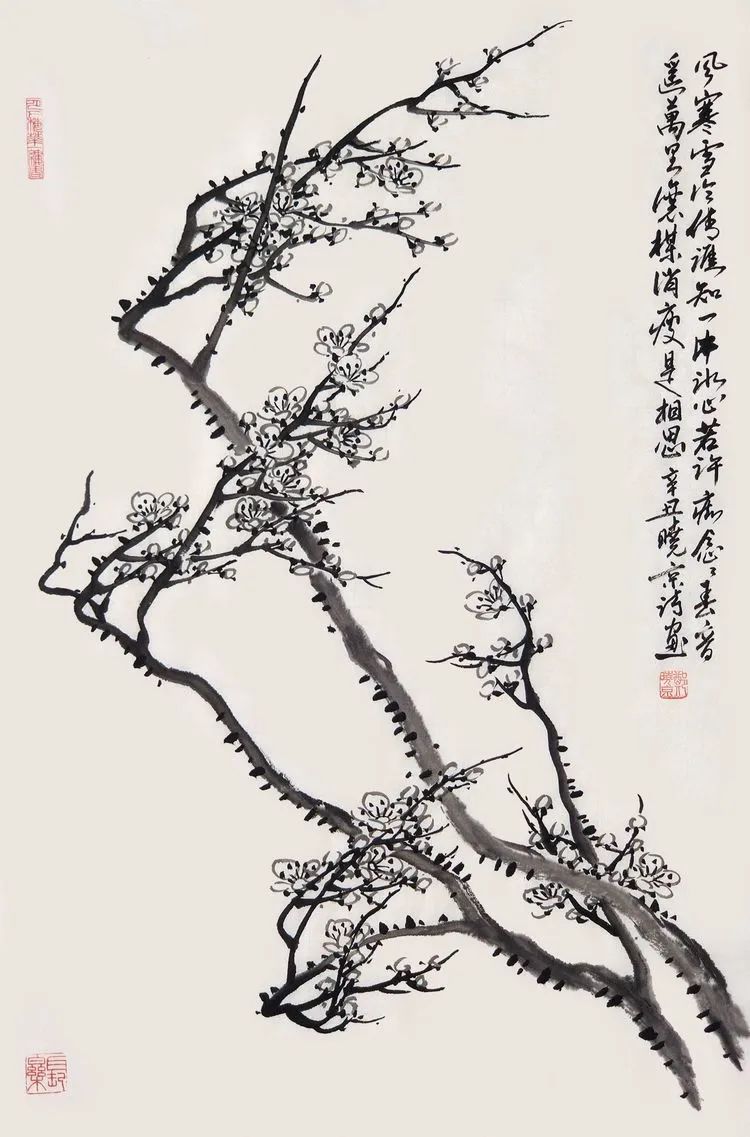 風寒雪冷倩誰知一片冰心若許痴念念春音
遥萬里讓楳消瘦是相思辛丑曉京詩畫